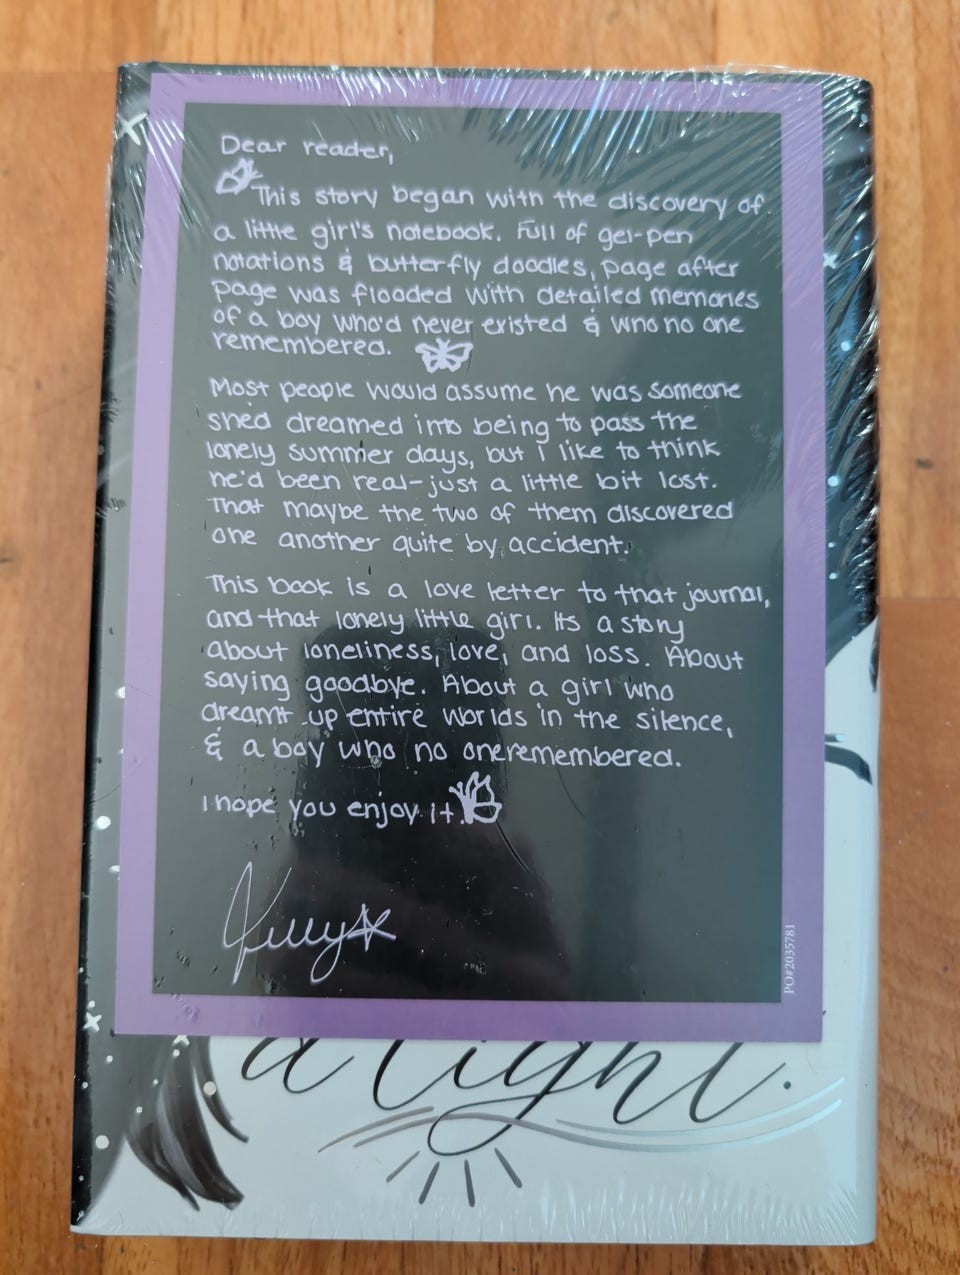 Dear reader,
This story began with the discovery of
a little girl's notebook. Full of gel-pen
notations & butterfly doodles, page after
page was flooded with detailed memories
of a boy who'd never existed & who no one
remembered.
Most people would assume he was someone
she'd dreamed into being to pass the
lonely summer days, but I like to think
he'd been real-just a little bit lost.
That maybe the two of them discovered
one another quite by accident.
This book is a love letter to that journal,
and that lonely little girl. Its a story
about loneliness, love, and loss. About
saying goodbye. About a girl who
dreamt up entire worlds in the silence,
& a boy who no one remembered.
I hope you enjoy it.
Kelly
PO#2035781
a light.